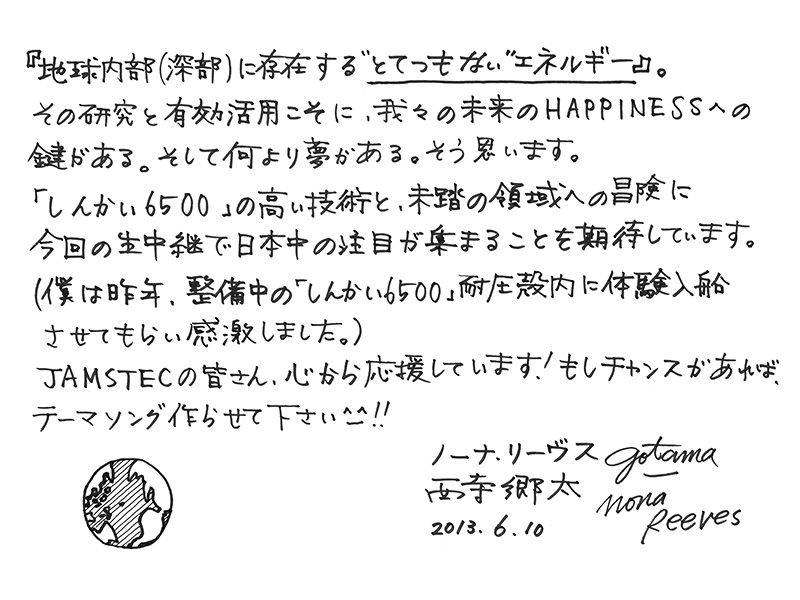 『地球内部(深部)に存在する"とてつもない"エネルギー』。
その研究と有効活用こそに、我々の未来のHAPPINESSへの
鍵がある。そして何より夢がある。そう思います。
「しんかい6500」の高い技術と、未踏の領域への冒険に
今回の生中継で日本中の注目が集まることを期待しています。
(僕は昨年、整備中の「しんかい6500」耐圧殻内に体験入船
させてもらい感激しました。)
JAMSTECの皆さん、心から応援しています！もしチャンスがあれば、
テーマソング作らせて下さい^^!!
ノーナ・リーヴス gotama
西寺郷太 nona
2013.6.10 Reeves